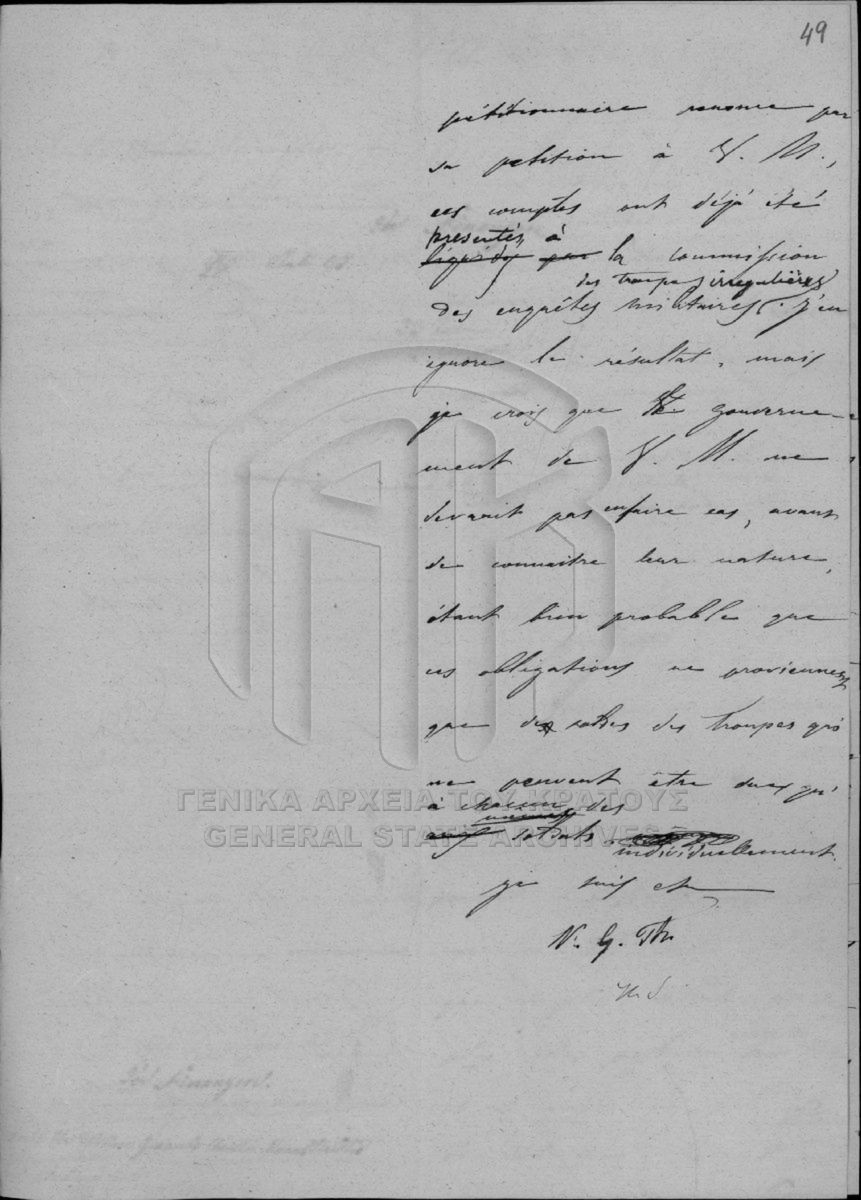 49
pétitionnaire renonce par
sa petition à V. M.,
ces comptes ont déjà été
presentés à
liquidés par la commission
des troupes irregulières
des enquêtes militaires. J'en
ignore le résultat, mais
je crois que le Gouverne-
ment de V. M. ne
devrait pas en faire cas, avant
de connaitre leur nature,
étant bien probable que
ces obligations ne proviennent
que des soldes des troupes qui
ne peuvent être dues qu'
à chacun des
soldats individuellement
je suis etc
N. G. Th
ΓΕΝΙΚΑ ΑΡΧΕΙΑ ΤΟΥ ΚΡΑΤΟΥΣ
GENERAL STATE ARCHIVES